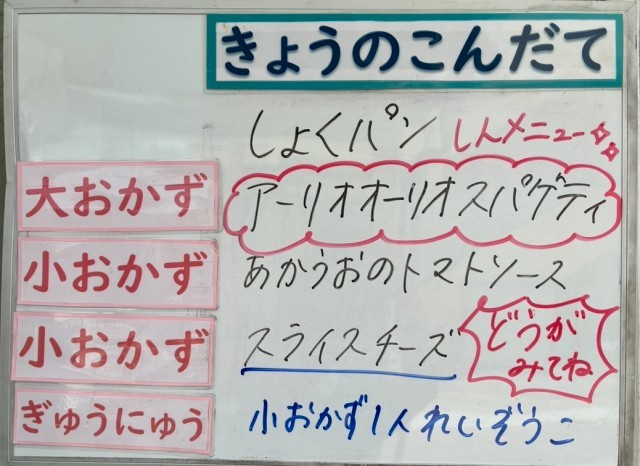 きょうのこんだて
しょくパン しんメニュー
大おかず アーリオオーリオスパゲティ
小おかず あかうおのトマトソース
小おかず スライスチーズ
どうが
みてね
ぎゅうにゅう 小おかず1人れいぞうこ